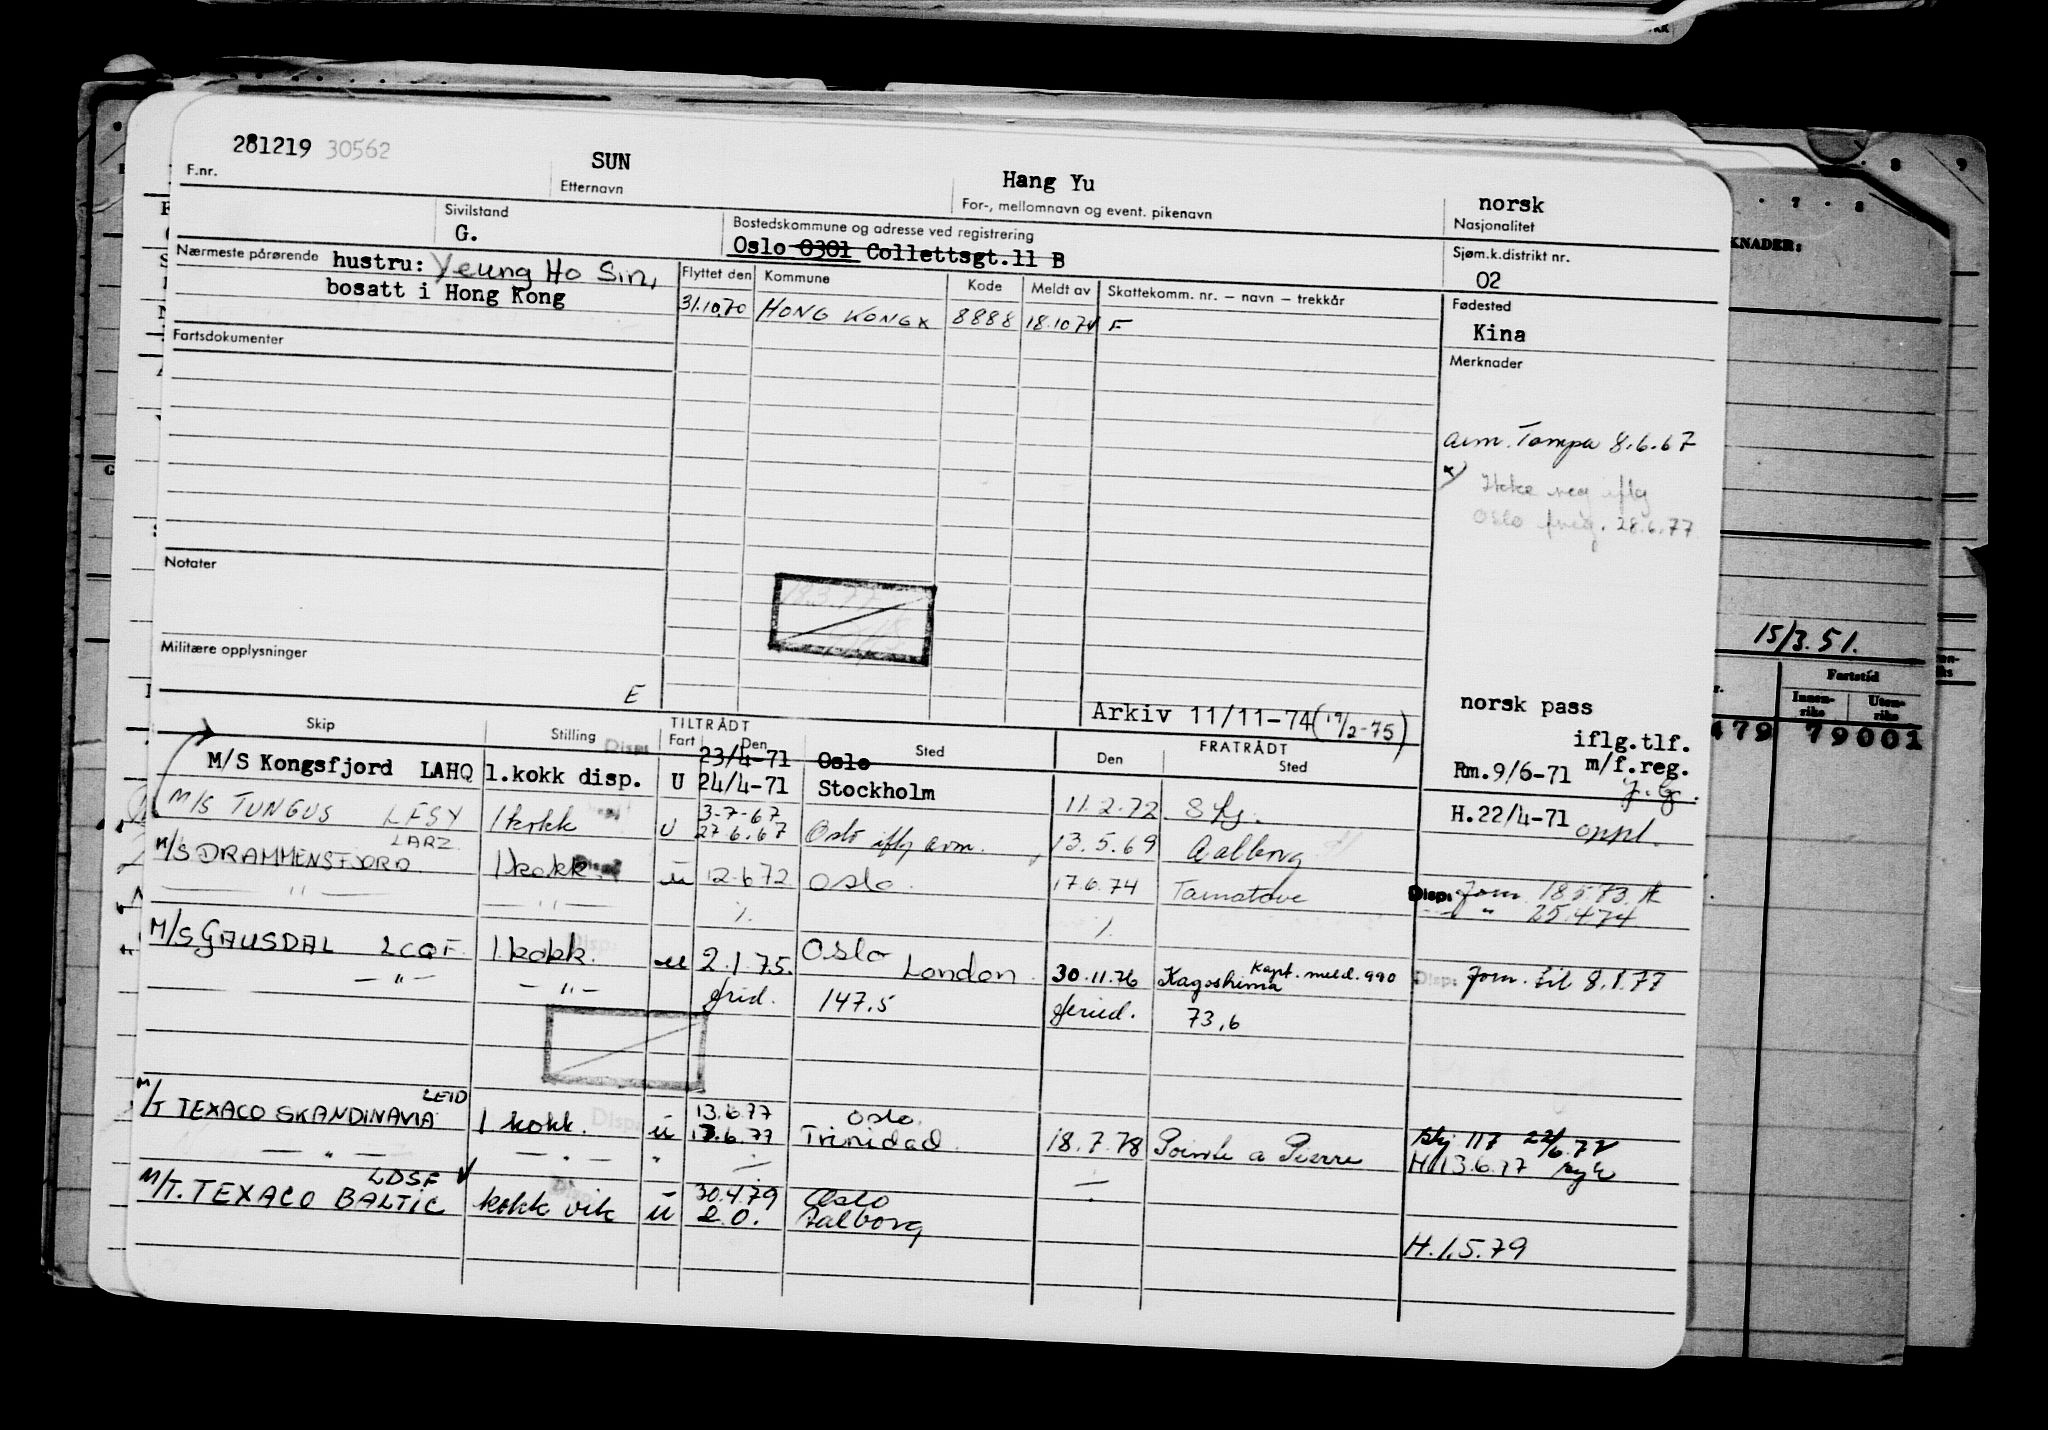 281219 30562
SUN
Hang Yu
norsk
F.nr.
Etternavn
For-, mellomnavn og event. pikenavn
Nasjonalitet
Sivilstand
G.
Bostedskommune og adresse ved registrering
Oslo 0301 Collettsgt.11 B
Sjøm.k.distrikt nr.
02
Nærmeste pårørende hustru: Yeung Ho Sin,
bosatt i Hong Kong
Flyttet den Kommune Kode Meldt av Skattekomm. nr. – navn – trekkår
31.10.70 HONG KONG x 8888 18.10.74 F
Fødested
Kina
Fartsdokumenter
Merknader
arm. Tampa 8.6.67
x) Ikke reg iflg
Oslo freg. 28.6.77
Notater
Militære opplysninger
E
Arkiv 11/11-74 (19/2-75)
norsk pass
iflg.tlf.
m/f.reg.
Rm.9/6-71
H.22/4-71 oppl.
Skip Stilling TILTRÅDT FRATRÅDT
Fart Den Sted Den Sted
23/4-71 Oslo
M/S Kongsfjord LAHQ 1.kokk disp. U 24/4-71 Stockholm 11.2.72
3-7-67
M/S TUNGUS LFSY 1 kokk U 27.6.67 Oslo iflg arm. 13.5.69 Aalborg
LARZ
M/S DRAMMENSFJORD 1 kokk u 12.6.72 Oslo. 17.6.74 Tamatave Disp: 18.5.73
— " — — " — " 25.4.74
M/S GAUSDAL LCQF 1 kokk. u 2.1.75. Oslo London 30.11.76 Kagoshima Kapt. meld. 990 Disp: til 8.1.77
— " — — " — 147.5 73,6
LEID
M/T TEXACO SKANDINAVIA 1 kokk. u 13.6.77 Oslo.
13.6.77 Trinidad 18.7.78 Pointe a Pierre 117 22/6.77
— " — — " — " H. 13.6.77
LDSF
M/T. TEXACO BALTIC kokk vik u 30.4.79 Oslo
2.0. Aalborg
H.1.5.79
KNADER:
15/3.51.
Fartstid
Innen-
riks
Uten-
riks
479 79001